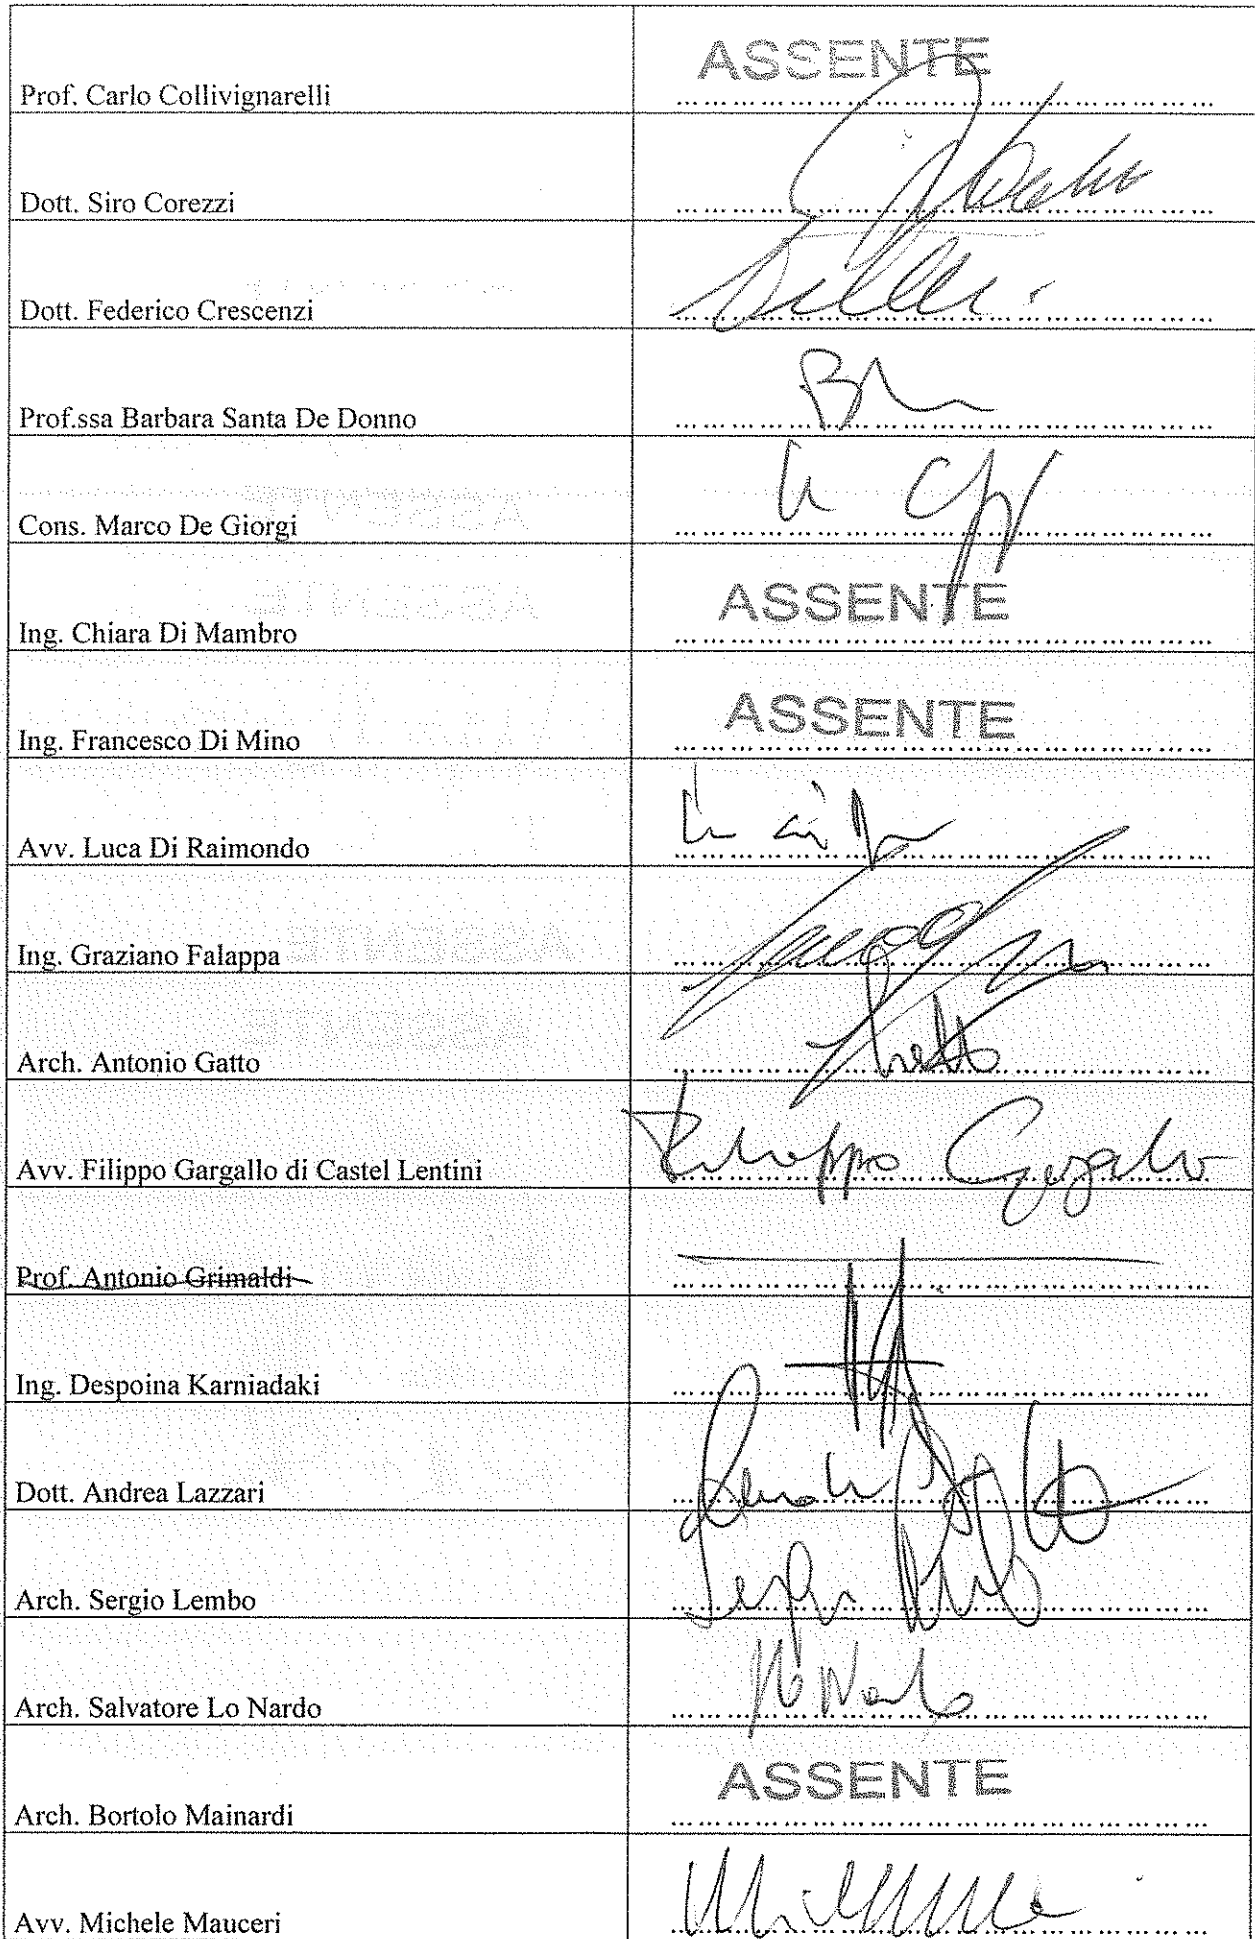 Prof. Carlo Collivignarelli
ASSENTE
Dott. Siro Corezzi
Dott. Federico Crescenzi
Prof.ssa Barbara Santa De Donno
Cons. Marco De Giorgi
Ing. Chiara Di Mambro
ASSENTE
Ing. Francesco Di Mino
ASSENTE
Avv. Luca Di Raimondo
Ing. Graziano Falappa
Arch. Antonio Gatto
Avv. Filippo Gargallo di Castel Lentini
Filippo Gargallo
Prof. Antonio Grimaldi
Ing. Despoina Karniadaki
Dott. Andrea Lazzari
Arch. Sergio Lembo
Arch. Salvatore Lo Nardo
Arch. Bortolo Mainardi
ASSENTE
Avv. Michele Mauceri